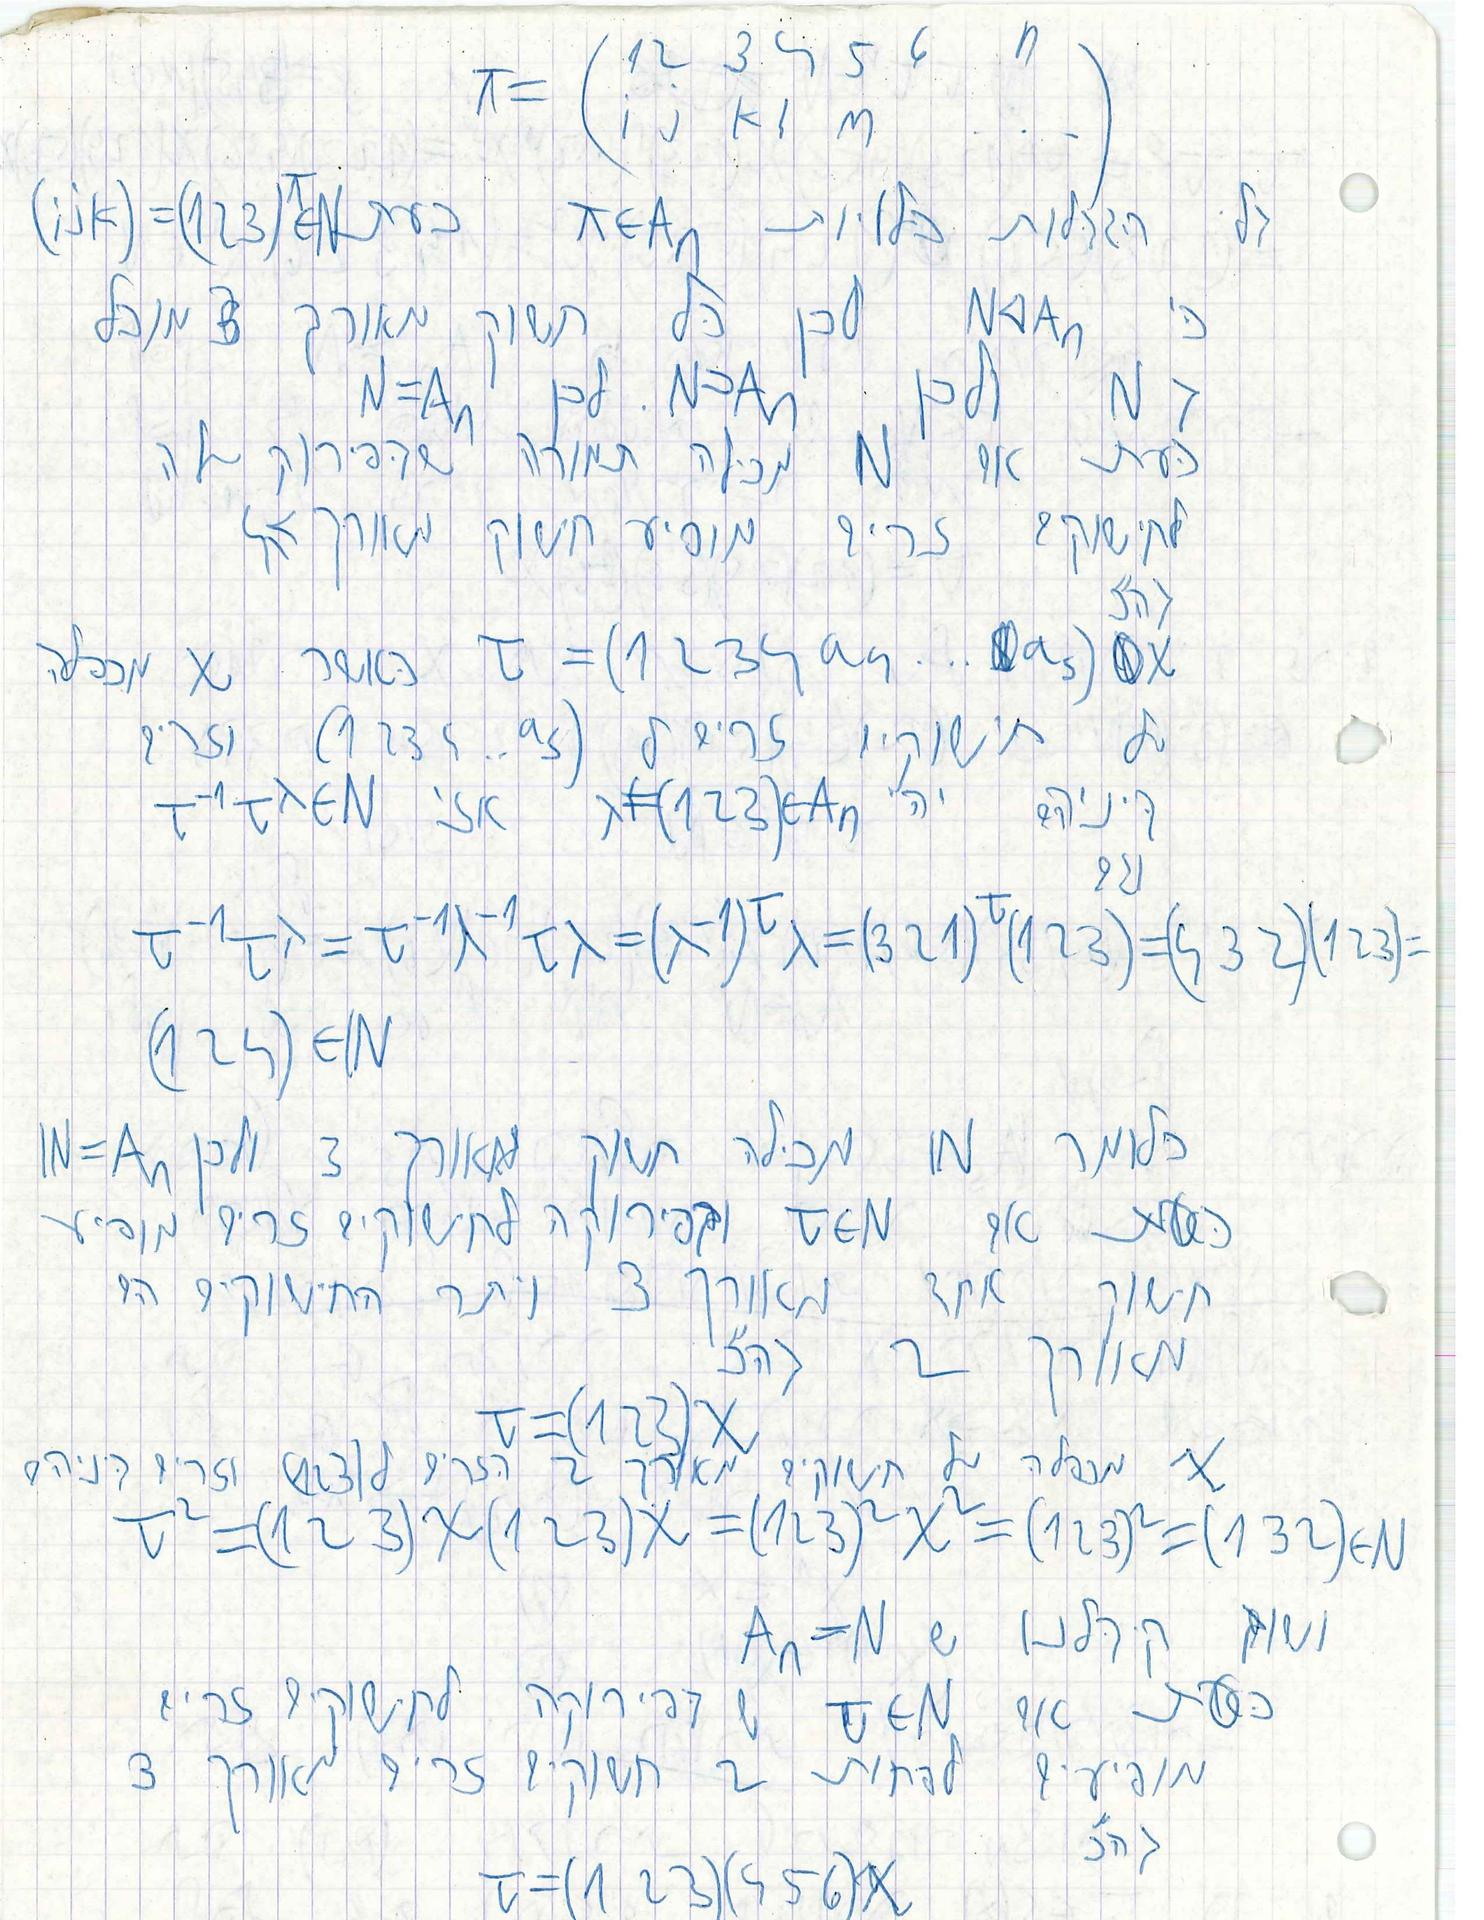 π = ( 1 2 3 4 5 6 n
i j k l m . . . )
בלי הגבלות כלליות π∈Aₙ כעת (ijk) = (123)^π ∈ N
כי N⊲Aₙ לכן כל חשוק מאורך 3 מוכל
ב N ולכן N⊃Aₙ. לכן N=Aₙ
כעת אם N מכילה תמורה שבפירוק שלה
לחישוקים זרים מופיע חשוק מאורך ≥4
בה"כ
τ = (1 2 3 4 a₄ ... aₛ) χ כאשר χ מכפלה
של חישוקים זרים ל (1 2 3 4 ... aₛ) וזרים
ביניהם יהי λ=(123)∈Aₙ אזי τ⁻¹τ^λ∈N
וגם
τ⁻¹τ^λ = τ⁻¹λ⁻¹τλ = (λ⁻¹)^τ λ = (321)^τ (123) = (4 3 2)(123) =
(1 2 4) ∈ N
כלומר N מכילה חשוק מאורך 3 ולכן N=Aₙ
כעת אם τ∈N ובפירוקה לחישוקים זרים מופיע
חישוק אחד מאורך 3 ויתר החישוקים הם
מאורך 2 בה"כ
τ = (123)χ
χ מכפלה של חשוקים מאורך 2 הזרים ל(123) וזרים ביניהם
τ² = (123)χ(123)χ = (123)²χ² = (123)² = (132)∈N
ושוב קיבלנו ש Aₙ=N
כעת אם τ∈N ש בפירוקה לחישוקים זרים
מופיעים לפחות 2 חשוקים זרים מאורך 3
בה"כ
τ = (1 2 3)(4 5 6)χ